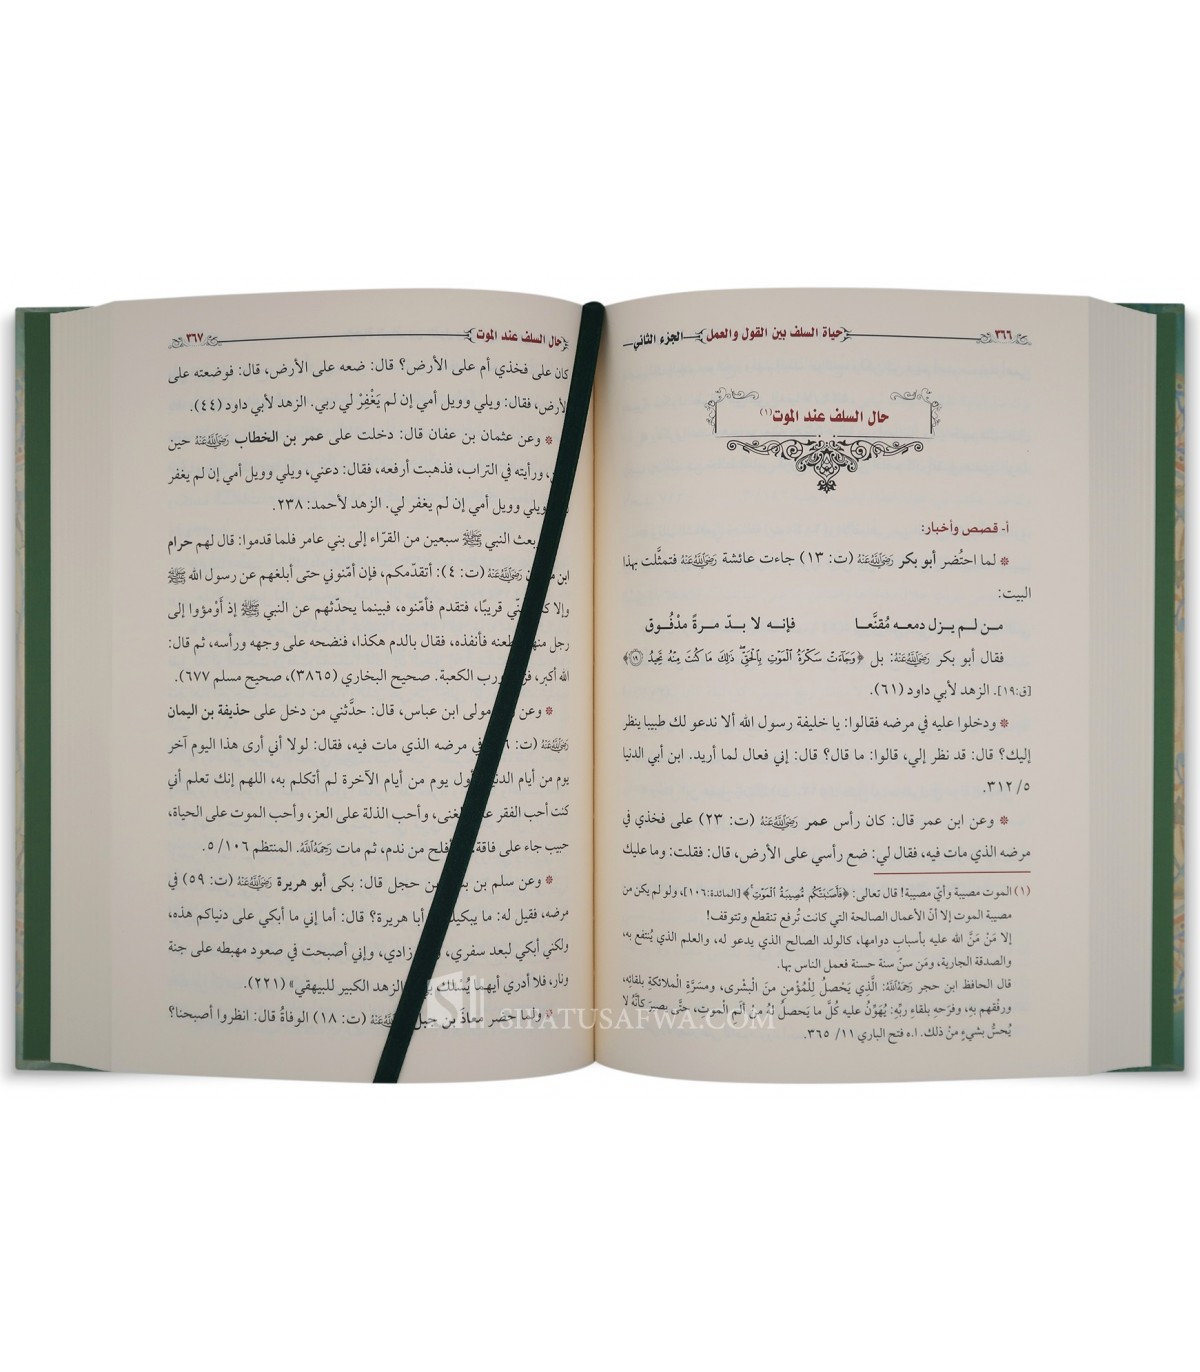 ٣٦٦ حياة السلف بين القول والعمل الجزء الثاني
حال السلف عند الموت(١)
أ- قصص وأخبار:
* لما احتُضر أبو بكر رَضِيَ اللَّهُ عَنْهُ (ت: ١٣) جاءت عائشة رَضِيَ اللَّهُ عَنْهُ فتمثَّلت بهذا
البيت:
من لم يزل دمعه مُقنَّعا فإنه لا بدّ مرةً مدْفُوق
فقال أبو بكر رَضِيَ اللَّهُ عَنْهُ: بل ﴿وَجَآءَتْ سَكْرَةُ ٱلْمَوْتِ بِٱلْحَقِّ ۖ ذَٰلِكَ مَا كُنتَ مِنْهُ تَحِيدُ ١٩﴾
[ق:١٩]. الزهد لأبي داود (٦١).
* ودخلوا عليه في مرضه فقالوا: يا خليفة رسول الله ألا ندعو لك طبيبا ينظر
إليك؟ قال: قد نظر إلي، قالوا: ما قال؟ قال: إني فعال لما أريد. ابن أبي الدنيا
٥/ ٣١٢.
* وعن ابن عمر قال: كان رأس عمر رَضِيَ اللَّهُ عَنْهُ (ت: ٢٣) على فخذي في
مرضه الذي مات فيه، فقال لي: ضع رأسي على الأرض، قال: فقلت: وما عليك
(١) الموت مصيبة وأيّ مصيبة! قال تعالى: ﴿فَأَصَٰبَتْكُم مُّصِيبَةُ ٱلْمَوْتِ﴾ [المائدة:١٠٦]، ولو لم يكن من
مصيبة الموت إلا أنّ الأعمال الصالحة التي كانت تُرفع تنقطع وتتوقف!
إلا مَنْ مَنَّ الله عليه بأسباب دوامها، كالولد الصالح الذي يدعو له، والعلم الذي يُنتفع به،
والصدقة الجارية، ومَن سنّ سنة حسنة فعمل الناس بها.
قال الحافظ ابن حجر رَحِمَهُ اللَّهُ: الَّذِي يَحْصلُ لِلْمُؤْمنِ منَ الْبشْرى، ومسَرَّةِ الْملائكةِ بلقائِه،
ورفْقهم بهِ، وفرَحهِ بلقاءِ ربِّهِ: يُهَوِّنُ عليه كُلَّ ما يَحصلُ لهُ منْ ألمِ الموتِ، حتَّى يصيرَ كأنَّهُ لا
يُحسُّ بشيءٍ منْ ذلك. ا.ه فتح الباري ١١/ ٣٦٥.
حال السلف عند الموت ٣٦٧
كان على فخذي أم على الأرض؟ قال: ضعه على الأرض، قال: فوضعته على
الأرض، فقال: ويلي وويل أمي إن لم يَغْفِرْ لي ربي. الزهد لأبي داود (٤٤).
* وعن عثمان بن عفان قال: دخلت على عمر بن الخطاب رَضِيَ اللَّهُ عَنْهُ حين
ورأيته في التراب، فذهبت أرفعه، فقال: دعني، ويلي وويل أمي إن لم يغفر
ويلي وويل أمي إن لم يغفر لي. الزهد لأحمد: ٢٣٨.
بعث النبي ﷺ سبعين من القرّاء إلى بني عامر فلما قدموا: قال لهم حرام
ابن رَضِيَ اللَّهُ عَنْهُ (ت: ٤): أتقدّمكم، فإن أمّنوني حتى أبلغهم عن رسول الله ﷺ
وإلا قريبًا، فتقدم فأمّنوه، فبينما يحدّثهم عن النبي ﷺ إذ أوْمؤوا إلى
رجل فأنفذه، فقال بالدم هكذا، فنضحه على وجهه ورأسه، ثم قال:
الله أكبر، ورب الكعبة. صحيح البخاري (٣٨٦٥)، صحيح مسلم ٦٧٧).
* وعن مولى ابن عباس، قال: حدَّثني من دخل على حذيفة بن اليمان
رَضِيَ اللَّهُ عَنْهُ (ت: في مرضه الذي مات فيه، فقال: لولا أني أرى هذا اليوم آخر
يوم من أيام أول يوم من أيام الآخرة لم أتكلم به، اللهم إنك تعلم أني
كنت أحب الفقر الغنى، وأحب الذلة على العز، وأحب الموت على الحياة،
حبيب جاء على فاقة، أفلح من ندم، ثم مات رَحِمَهُ اللَّهُ. المنتظم ١٠٦/ ٥.
* وعن سلم بن بن حجل قال: بكى أبو هريرة رَضِيَ اللَّهُ عَنْهُ (ت: ٥٩) في
مرضه، فقيل له: ما يبكيك أبا هريرة؟ قال: أما إني ما أبكي على دنياكم هذه،
ولكني أبكي لبعد سفري، زادي، وإني أصبحت في صعود مهبطه على جنة
ونار، فلا أدري أيهما يُسْلك الزهد الكبير للبيهقي» (٢٢١).
* ولما حضر معاذَ بن جبل رَضِيَ اللَّهُ عَنْهُ (ت: ١٨) الوفاةُ قال: انظروا أصبحنا؟
SIFATUSAFWA.COM